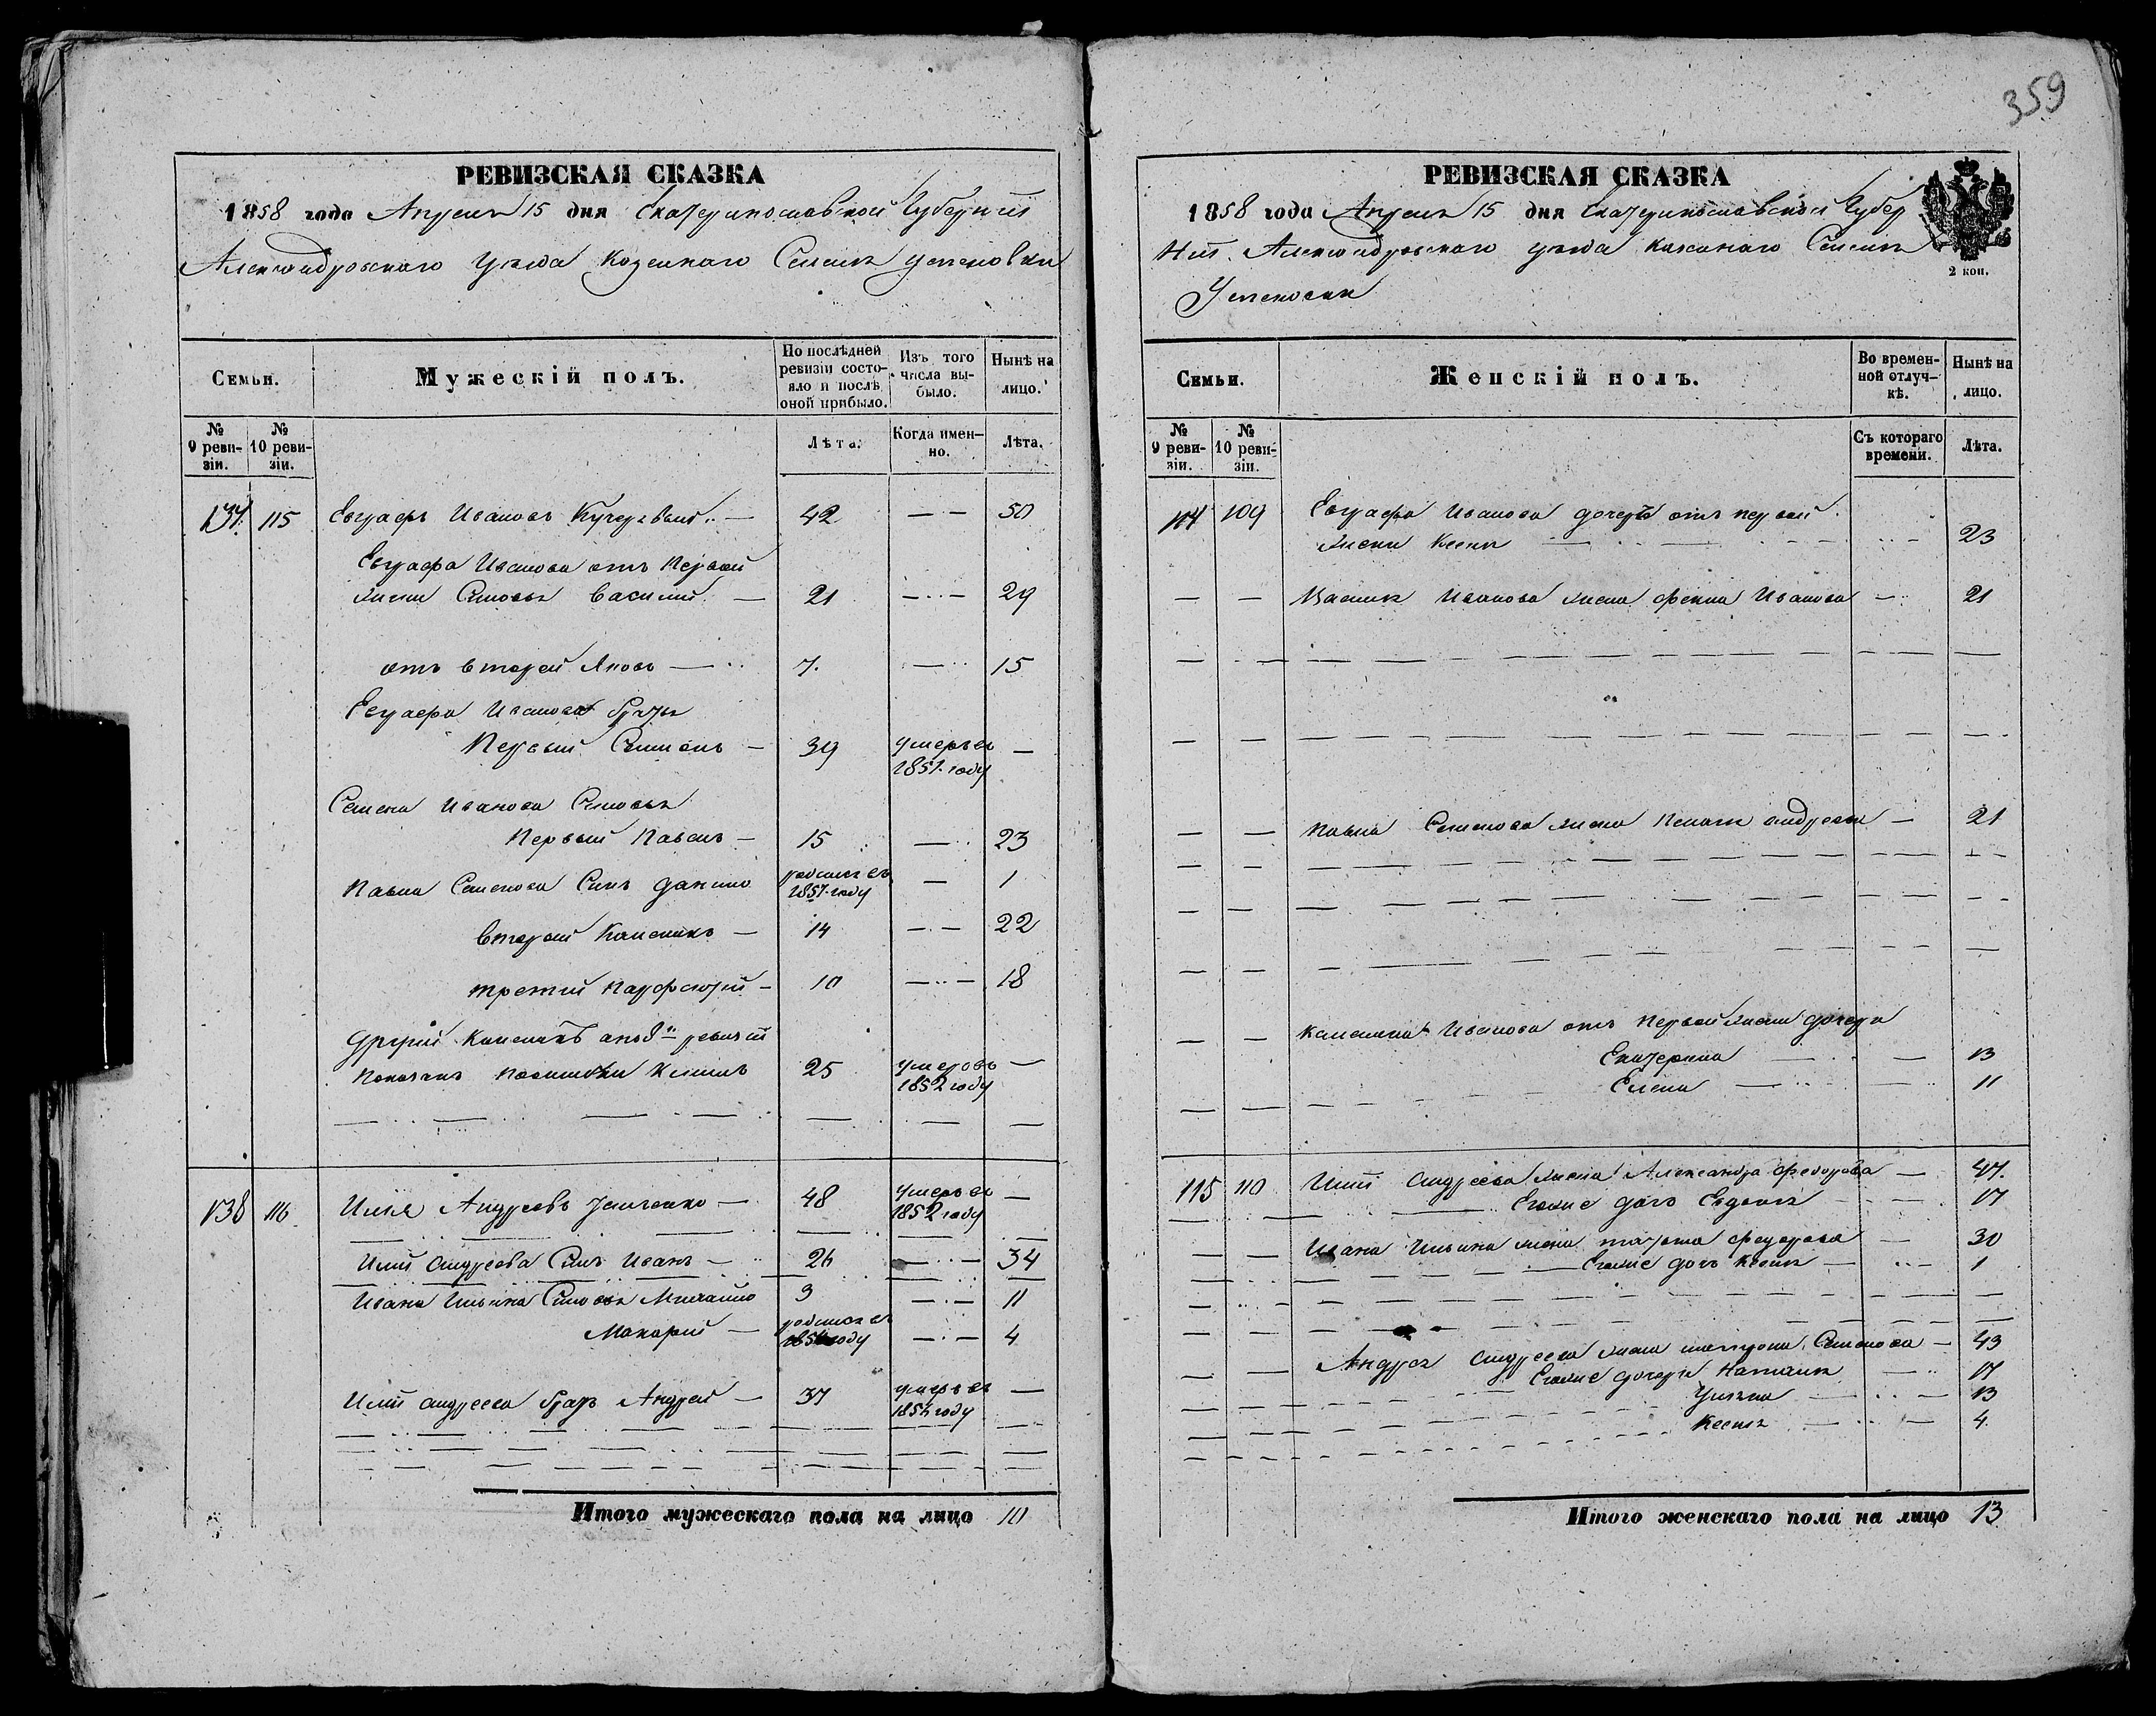 359
РЕВИЗСКАЯ СКАЗКА
1858 года Апреля 15 дня Екатеринославской Губернии
Александровского уезда казенного Селения Успеновки
Семьи.
Мужескій полъ.
По послѣдней ревизіи состояло и послѣ оной прибыло.
Изъ того числа выбыло.
Нынѣ на лицо.
№ 9 ревизіи.
№ 10 ревизіи.
Лѣта.
Когда именно.
Лѣта.
137 115 Евграфъ Ивановъ 42 — — 50
Евграфа Иванова отъ первой
жены Сыновья Василий — 21 — — 29
отъ второй Яковъ — 7. — 15
Евграфа Иванова братья
Первый Семенъ — 39 умеръ въ —
1857 году
Семена Иванова Сыновья
Первый Павелъ — 15 — 23
Павла Семенова Сынъ Данило родился въ — 1
1857 году
второй — 14 — — 22
третий — 10 — — 18
25 умеръ въ —
1852 году
138 116 Илья Андреевъ — 48 умеръ въ —
1852 году
Ильи Андреева Сынъ Иванъ — 26 — — 34
Ивана Ильина Сыновья Михайло 3 — — 11
Макарий — родился въ — — 4
1854 году
Ильи Андреева братъ Андрей — 37 умеръ въ —
1854 году
Итого мужескаго пола на лицо 10
РЕВИЗСКАЯ СКАЗКА
1858 года Апреля 15 дня Екатеринославской Губер
нии Александровского уезда казенного Селения
Успеновки
2 коп.
Семьи.
Женскій полъ.
Во временной отлучкѣ.
Нынѣ на лицо.
№ 9 ревизіи.
№ 10 ревизіи.
Съ котораго времени.
Лѣта.
114 109 Евграфа Иванова дочерь отъ первой
жены 23
— — Иванова жена Иванова — 21
— — Павла Семенова жена Андреева — 21
— — Иванова отъ первой жены дочери
Екатерина — 13
Елена — 11
115 110 Ильи Андреева жена Александра Федорова — 47.
Егоже дочь 17
— — Ивана Ильина жена Татьяна Федорова — 30
Егоже дочь — 1
— — Андрея Андреева жена Матрона Семенова — 43
Егоже дочери Наталия — 17
Ульяна — 13
— 4
Итого женскаго пола на лицо 13